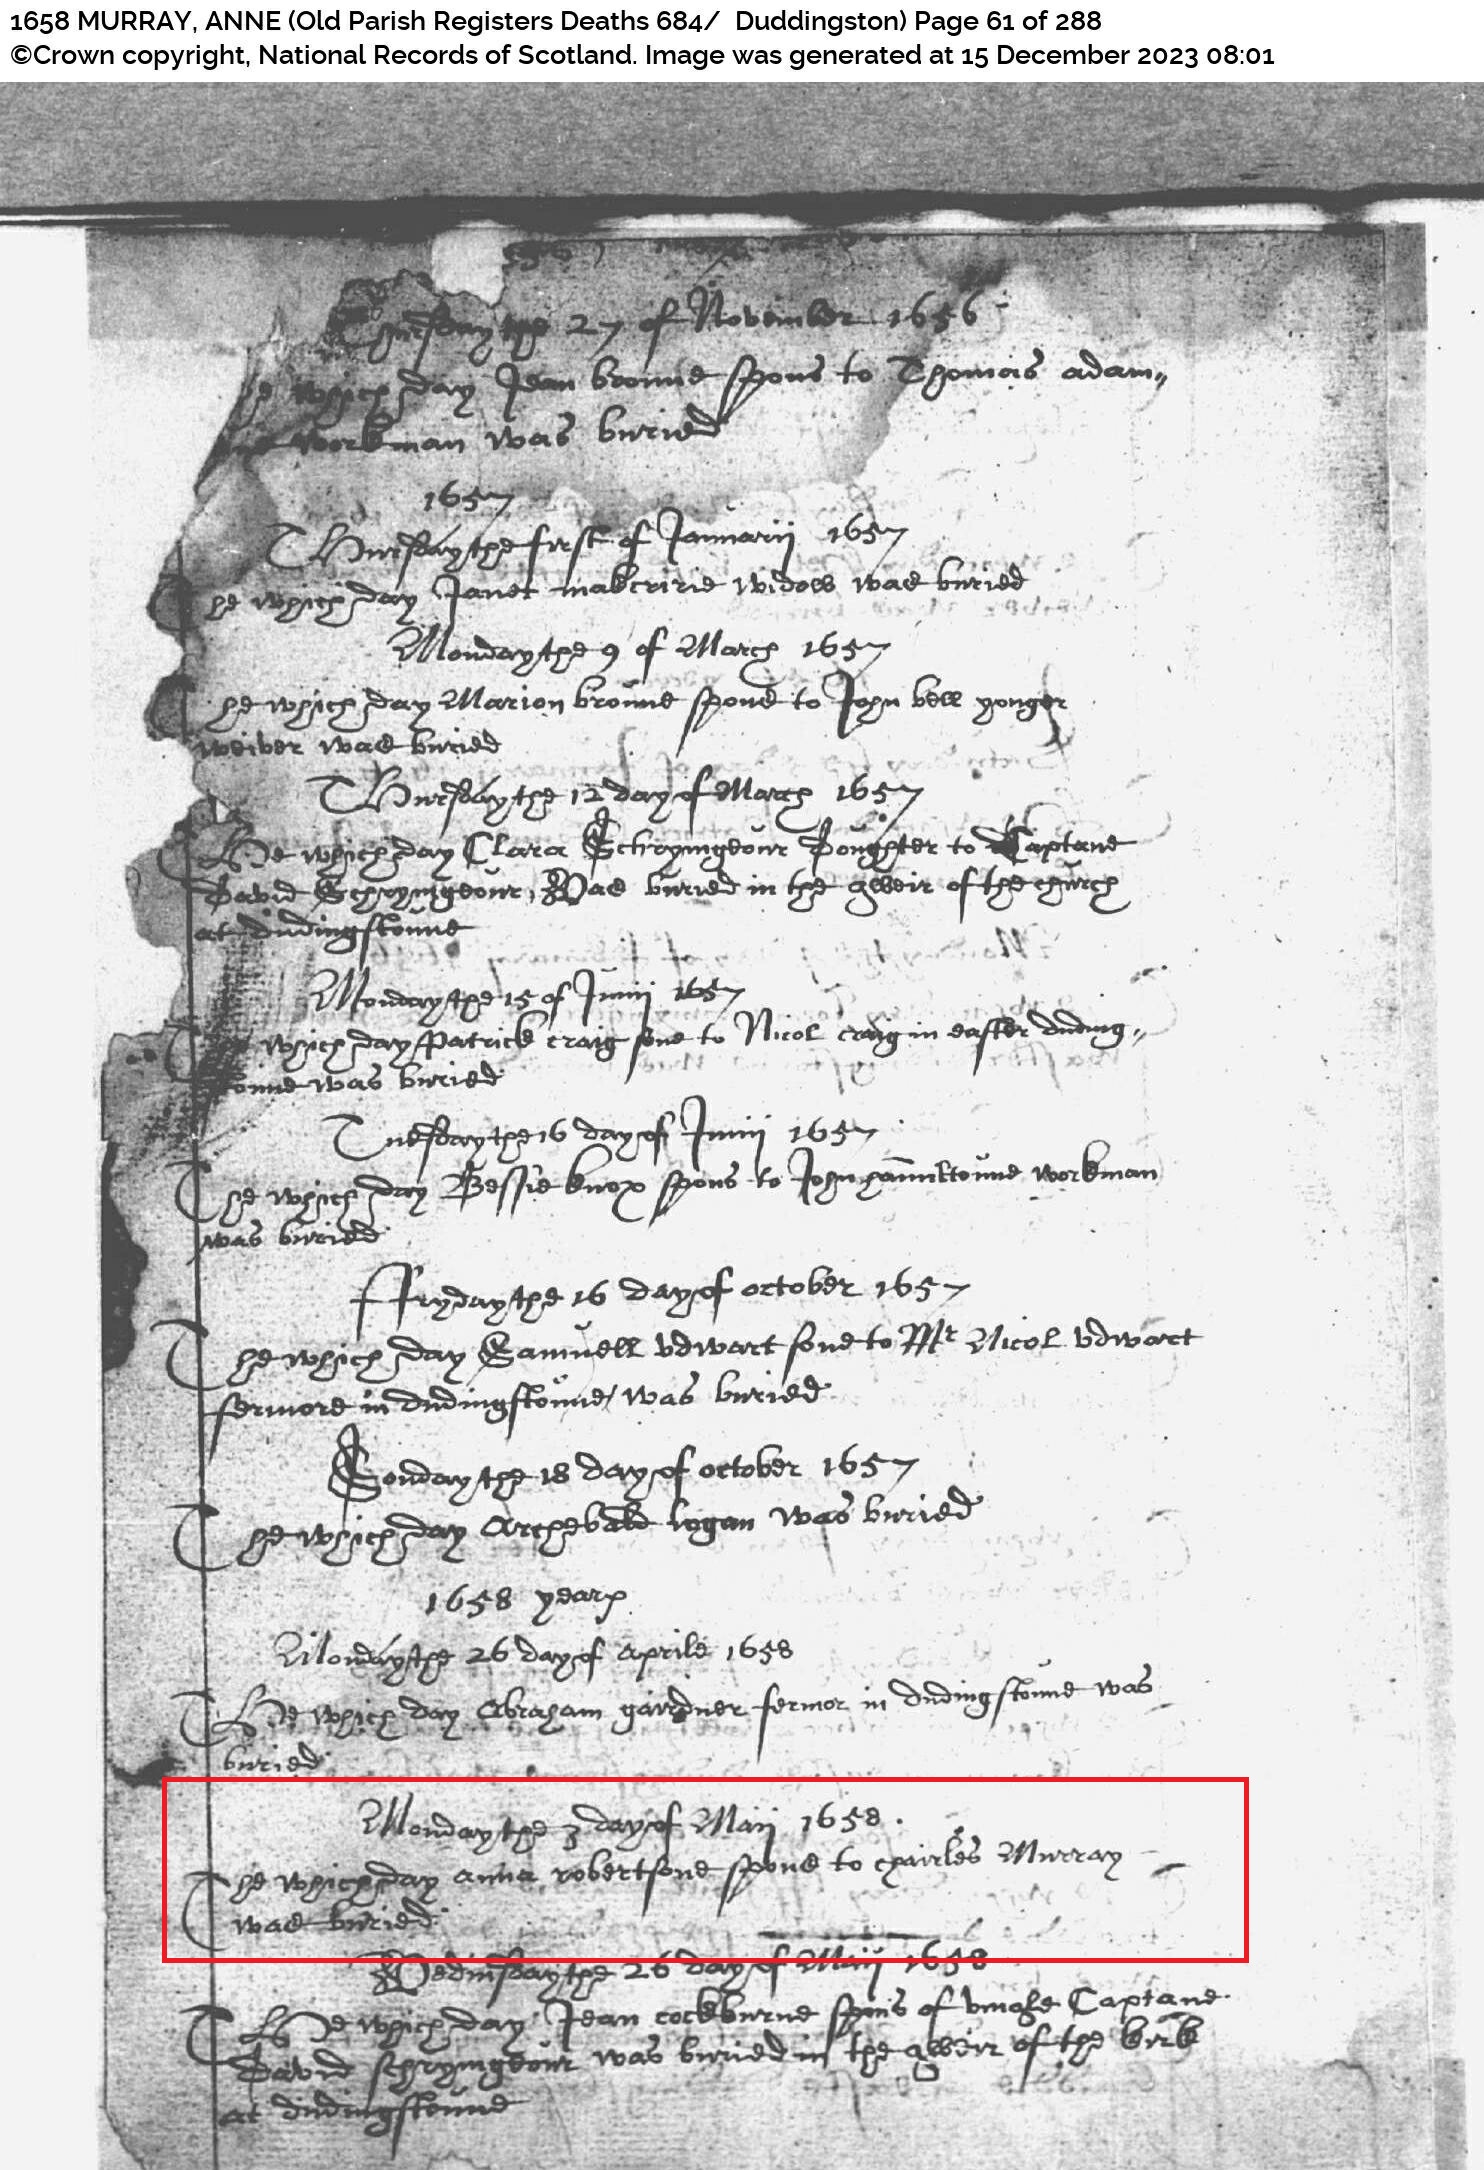 1658 MURRAY, ANNE (Old Parish Registers Deaths 684/ Duddingston) Page 61 of 288
©Crown copyright, National Records of Scotland. Image was generated at 15 December 2023 08:01
Thursday the 27 of November 1656
he which day Jean broune spous to Thomas adam„
workman was buried
1657
Thursday the first of Januarij 1657
The which day Janet makcririe widow was buried
Monday the 9 of March 1657
The which day Marion broune spous to John bell yonger
weiver was buried
Thursday the 12 day of March 1657
The which day Clara Schrymgeour Doughter to Captane
David Schrymgeour, Was buried in the qweir of the church
at dudingstoune
Monday the 15 of Junij 1657
The which day Patrick craig sone to Nicol craig in easter duding„
stoune was buried
Tuesday the 16 day of Junij 1657
The which day Bessie knox spous to John hammiltoune workman
was buried
Ffryday the 16 day of october 1657
The which day Samuell vdwart sone to Mr Nicol vdwart
fermore in dudingstoune was buried
Sonday the 18 day of october 1657
The which day Archebald logan was buried
1658 yeare
Monday the 26 day of aprile 1658
The which day Abraham gairdner fermor in dudingstoune was
buried
Monday the 3 day of Maij 1658.
The which day anna robertsone spous to chairles Murray
was buried
Wednsday the 26 day of Maij 1658
The which day Jean cockburne spous of vmqle Captane
David schrymgeour was buried in the qweir of the kirk
at dudingstoune